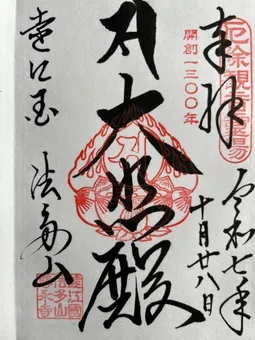 厄除観音靈場
奉拝
開創一三〇〇年
令和七年
十月廿八日
大悲殿
遠江国 法多山
遠江國
法多山
尊永寺